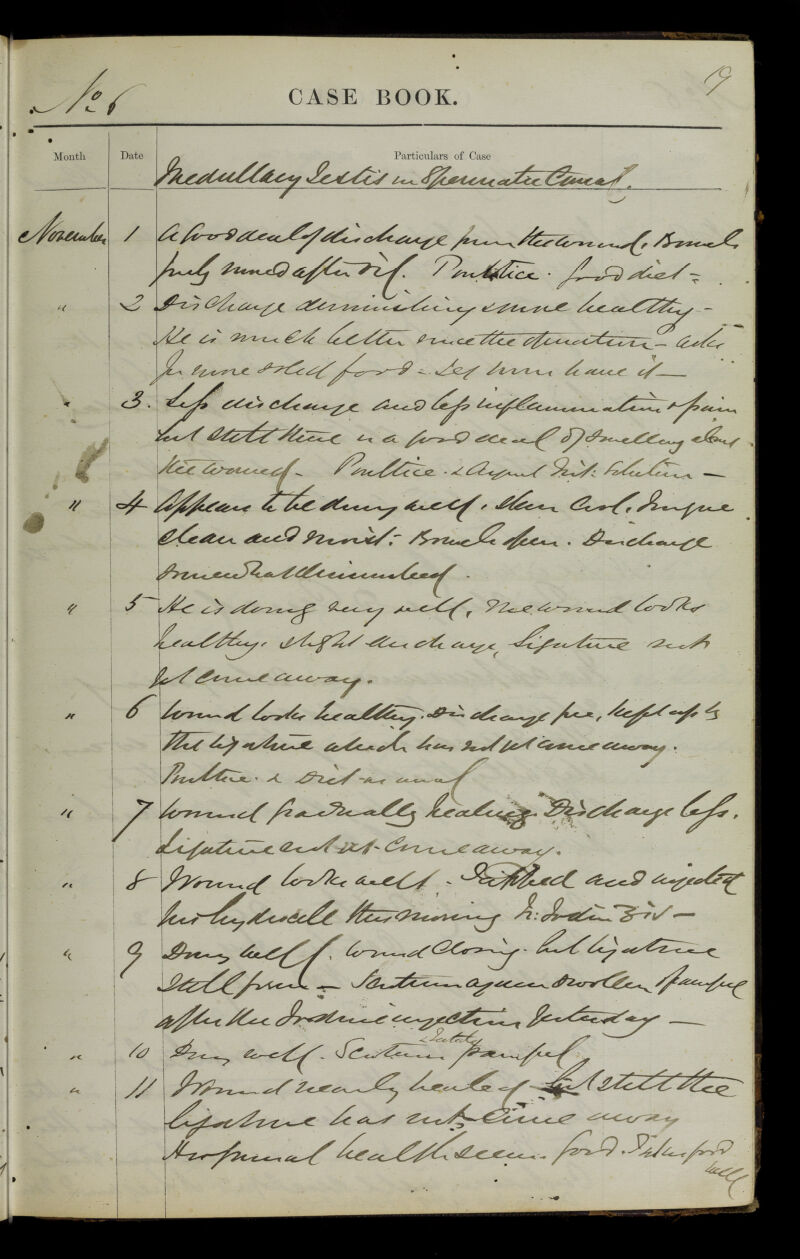 19
No 6
CASE BOOK.
Month Date Particulars of Case
Medullary Testis in Spermatic Canal.
November 1 A good deal of discharge from the wound. Bowels
freely moved after oil. Poultice. good diet -
" 2 Discharge diminishing & more healthy -
He is much better since the operation - asks
for more solid food - Let him have it -
" 3. Less discharge and less inflammation & pain
but still there is a good deal of swelling about
the wound - Poultice & Argent Nit: Solution -
" 4 Appears to be doing well. Skin Cool. Tongue
clean and moist: Bowels open. Discharge
somewhat diminished.
" 5 He is doing very well. The wound looks
healthy. slight discharge, Ligature not
yet come away.
" 6 Wound looks healthy. Discharge free, kept up by
the ligature which has not yet come away.
Poultice & Diet as usual
" 7 Wound gradually healing. Discharge less.
Ligature not yet come away.
" 8 Wound looks well - Tapped and injected
his hydrocele this morning Tr: Iodin ʒiv -
" 9 Doing well. Wound closing. but ligature
still firm - Scrotum again swollen & painful
after the Iodine injection yesterday -
" 10 Doing well. Scrotum painful
" 11 Wound nearly healed but still the
ligature has not come away
His general health seems good. Takes food
well